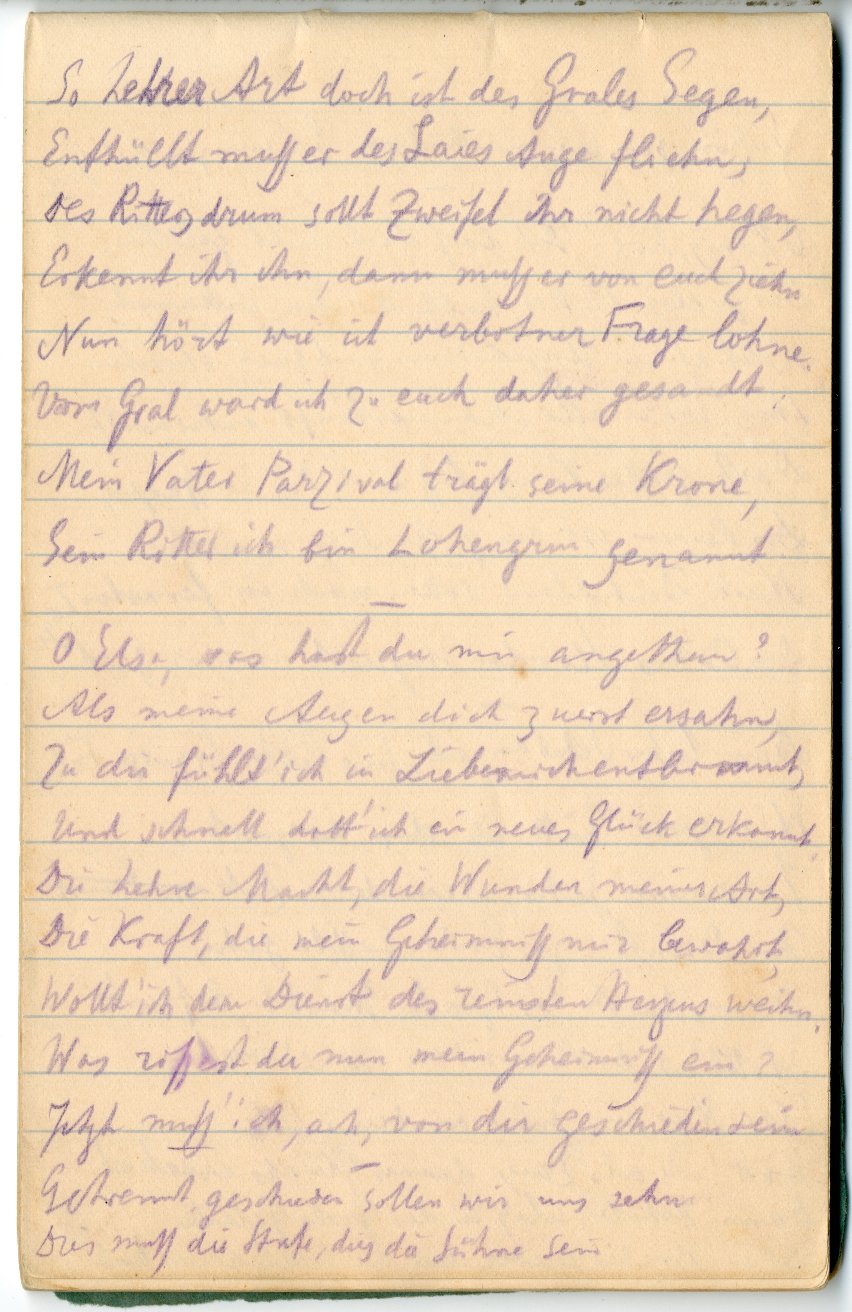 So hehrer Art doch ist des Grales Segen,
Enthüllt muss er des Laies Auge fliehn,
Des Ritters drum sollt Zweifel ihr nicht hegen,
Erkennt ihr ihn, dann muss er von euch ziehn
Nun hört wie ich verbotner Frage lohne.
Vom Gral ward ich zu euch daher gesandt:
Mein Vater Parzival trägt seine Krone,
Sein Ritter ich bin Lohengrin genannt
—
O Elsa, was hast du mir angethan?
Als meine Augen dich zuerst ersahn,
Zu dir fühlt' ich in Liebe mich entbrannt,
Und schnell hatt' ich ein neues Glück erkannt.
Die hehre Macht, die Wunder meiner Art,
Die Kraft, die mein Geheimniss mir bewahrt,
Wollt' ich dem Dienst des reinsten Herzens weihn.
Was rissest du nun mein Geheimniss ein?
Jetzt muss ich, ach, von dir geschieden sein
Getrennt, geschieden sollen wir uns sehn
Dies muss die Strafe, dies die Sühne sein